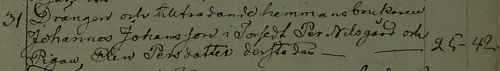 31 Drängen och tillträdande hemmansbrukaren
Johannes Johansson i Torsedt Per Nilsgård och
Pigan, Elin Persdotter derstädes — 25 - 42.